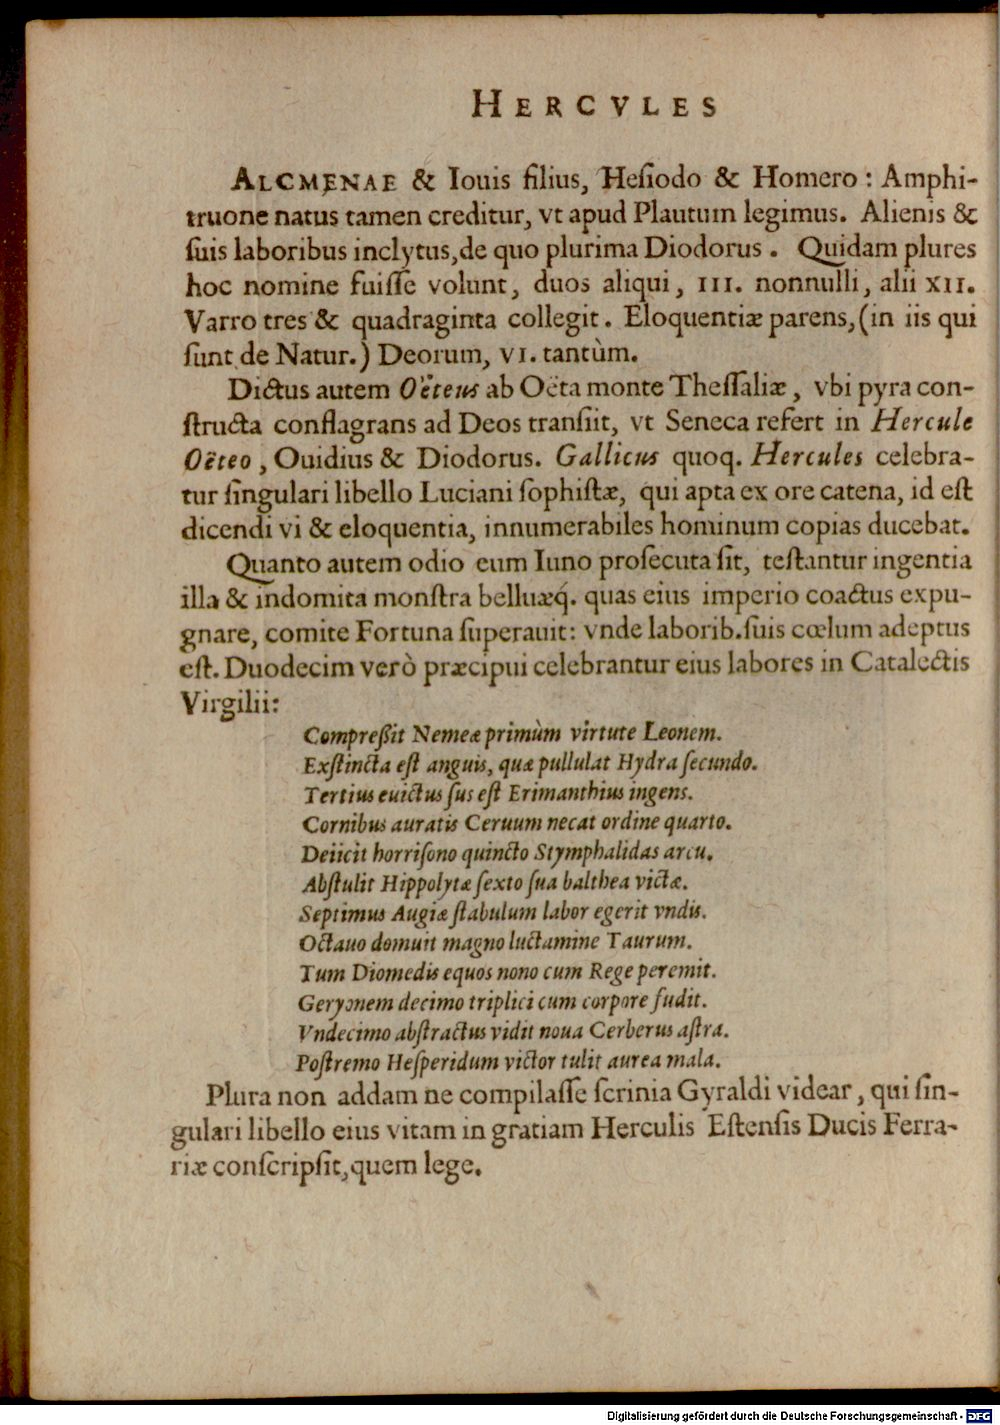 HERCVLES
ALCMENAE & Iouis filius, Hesiodo & Homero : Amphi-
truone natus tamen creditur, vt apud Plautum legimus. Alienis &
suis laboribus inclytus, de quo plurima Diodorus . Quidam plures
hoc nomine fuisse volunt, duos aliqui, III. nonnulli, alii XII.
Varro tres & quadraginta collegit. Eloquentiæ parens, (in iis qui
sunt de Natur.) Deorum, VI. tantùm.
Dictus autem Oëteus ab Oëta monte Thessaliæ, vbi pyra con-
structa conflagrans ad Deos transiit, vt Seneca refert in Hercule
Oëteo, Ouidius & Diodorus. Gallicus quoq. Hercules celebra-
tur singulari libello Luciani sophistæ, qui apta ex ore catena, id est
dicendi vi & eloquentia, innumerabiles hominum copias ducebat.
Quanto autem odio eum Iuno prosecuta sit, testantur ingentia
illa & indomita monstra belluæq́. quas eius imperio coactus expu-
gnare, comite Fortuna superauit: vnde laborib. suis cœlum adeptus
est. Duodecim verò præcipui celebrantur eius labores in Catalectis
Virgilii:
Compreßit Nemeæ primùm virtute Leonem.
Exstincta est anguis, quæ pullulat Hydra secundo.
Tertius euictus sus est Erimanthius ingens.
Cornibus auratis Ceruum necat ordine quarto.
Deiicit horrisono quincto Stymphalidas arcu.
Abstulit Hippolytæ sexto sua balthea victæ.
Septimus Augiæ stabulum labor egerit vndis.
Octauo domuit magno luctamine Taurum.
Tum Diomedis equos nono cum Rege peremit.
Geryonem decimo triplici cum corpore fudit.
Vndecimo abstractus vidit noua Cerberus astra.
Postremo Hesperidum victor tulit aurea mala.
Plura non addam ne compilasse scrinia Gyraldi videar, qui sin-
gulari libello eius vitam in gratiam Herculis Estensis Ducis Ferra-
riæ conscripsit, quem lege.
Digitalisierung gefördert durch die Deutsche Forschungsgemeinschaft - DFG